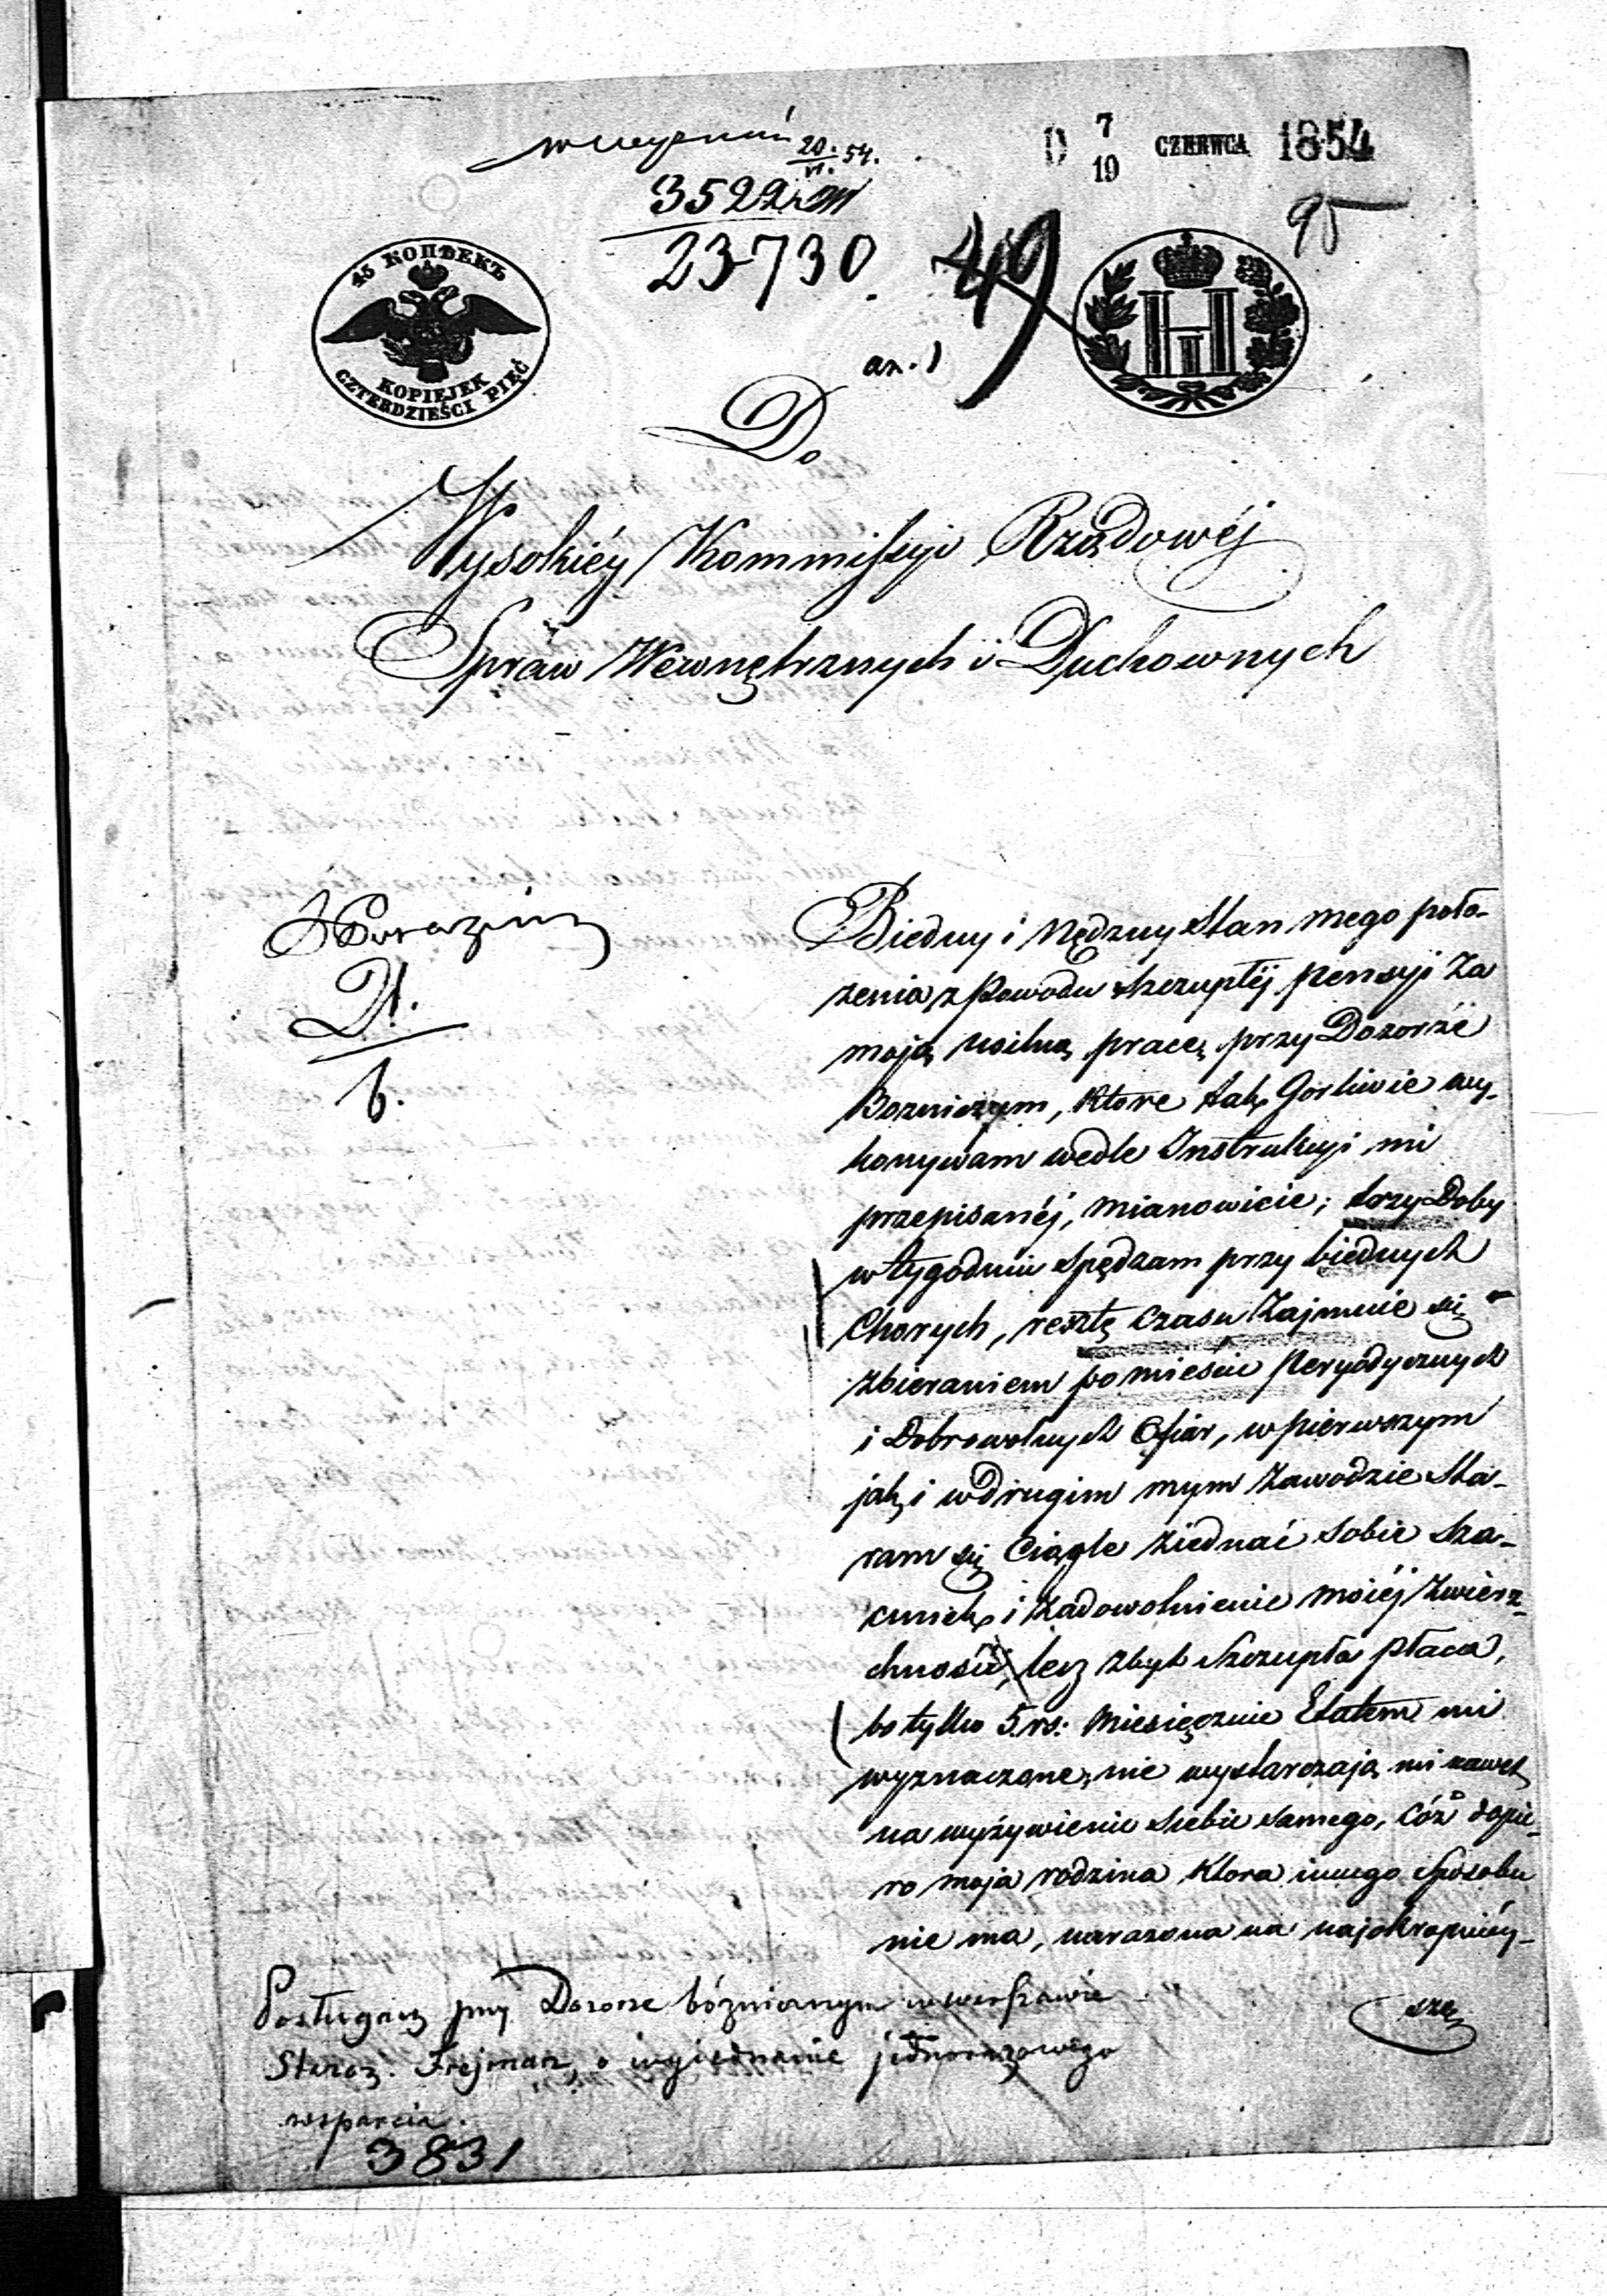 D 7/19 CZERWCA 1854
20/VI. 54.
3522
23730
95
49
45 КОПѢЕКЪ
KOPIEJEK
CZTERDZIEŚCI PIĘĆ
H I
an. 1
Do
Wysokiéy Kommissyi Rządowéj
Spraw Wewnętrznych i Duchownych
Biedny i Nędzny Stan mego poło-
zenia z Powodu szczupłéj pensyi za
moją usilną pracę przy Dozorze
Bozniczym, ktore tak Gorliwie wy-
konywam wedle Instrukcyi mi
przepisanéj, mianowicie; trzy Doby
w tygodniu spędzam przy biednych
Chorych, resztę czasu Zajmuie się
zbieraniem po mieście Peryodycznych
i Dobrowolnych Ofiar, w pierwszym
jak i w drugim mym Zawodzie Sta-
ram się Ciągle ziednać sobie Sza-
cunek i Zadowolnienie moiéj Zwierz-
chności, lecz zbyt Szczupła płaca,
bo tylko 5. rs: Miesięcznie Etatem mi
wyznaczone, nie wystarczają mi nawet
na wyżywienie siebie samego, Cóż dopie-
ro moja rodzina Ktora innego Sposobu
nie ma, narazona na najokropniéy-
szę
D.
6.
Posługacz przy Dozorze bózniczym w Warszawie
Staroz. Frejman, o wyiednanie jednorazowego
wsparcia.
3831